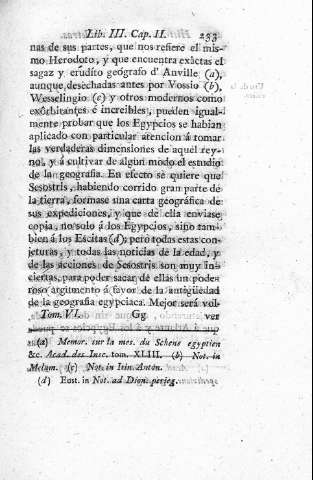 Lib. III. Cap. II. 233
nas de sus partes, que nos refiere el mis-
mo Herodoto, y que encuentra exâctas el
sagaz y erudíto geógrafo d' Anville (a),
aunque desechadas antes por Vossio (b),
Wesselingio (c) y otros modernos como
exôrbitantes é increibles, pueden igual-
mente probar que los Egypcios se habian
aplicado con particular atencion á tomar
las verdaderas dimensiones de aquel rey-
no, y á cultivar de algun modo el estudio
de la geografia. En efecto se quiere que
Sesostris, habiendo corrido gran parte de
la tierra, formase una carta geográfica de
sus expediciones, y que de ella enviase
copia, no solo á los Egypcios, sino tam-
bien á los Escitas (d); pero todas estas con-
jeturas, y todas las noticias de la edad, y
de las acciones de Sesostris son muy in-
ciertas, para poder sacar de ellas un pode-
roso argumento á favor de la antigüedad
de la geografia egypciaca. Mejor será vol-
Tom. VI. Gg ver
(a) Memor. sur la mes. du Schene egyptien
&c. Acad. des Insc. tom. XLIII. (b) Not. in
Melam. (c) Not. in Itin. Anton.
(d) Eust. in Not. ad Dion. perieg.